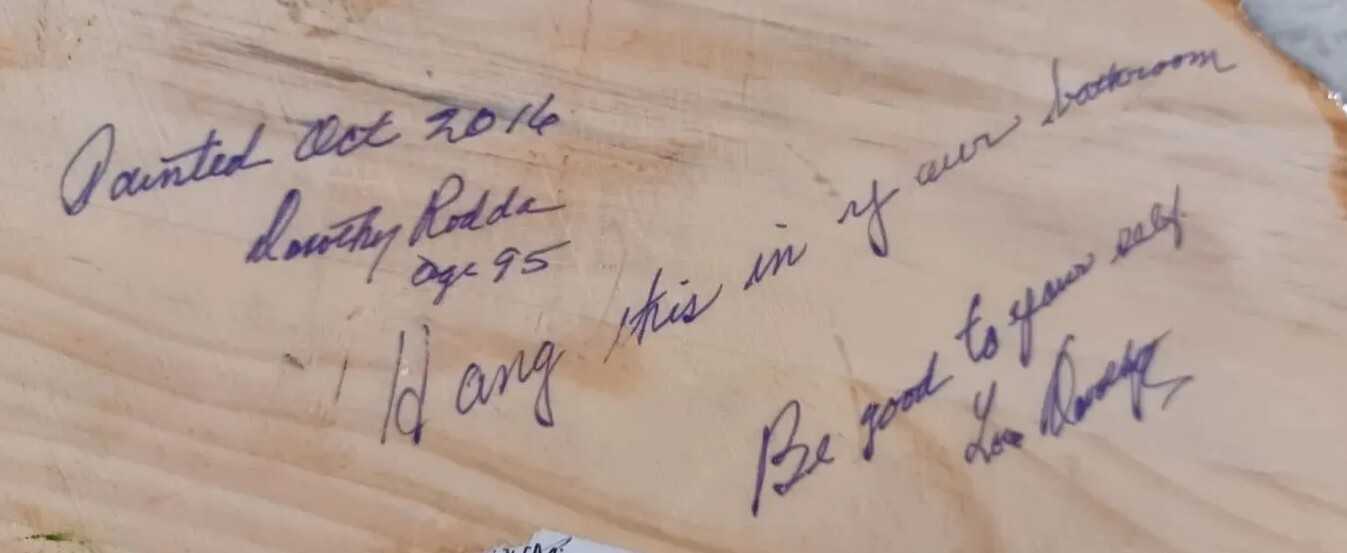 Painted Oct 2016
Dorothy Rodda
age 95
Hang this in your bathroom
Be good to your self.
Love Dorothy